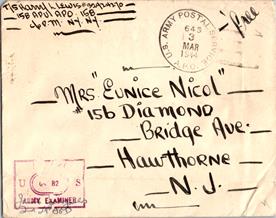 158 APU APO. 158
% P.M. N.Y. N.Y.
U.S. ARMY POSTAL SERVICE
643
3
MAR
1944
A.P.O.
Free
Mrs. "Eunice Nicol"
#156 Diamond
Bridge Ave.
Hawthorne
N. J.
U S
ARMY EXAMINER